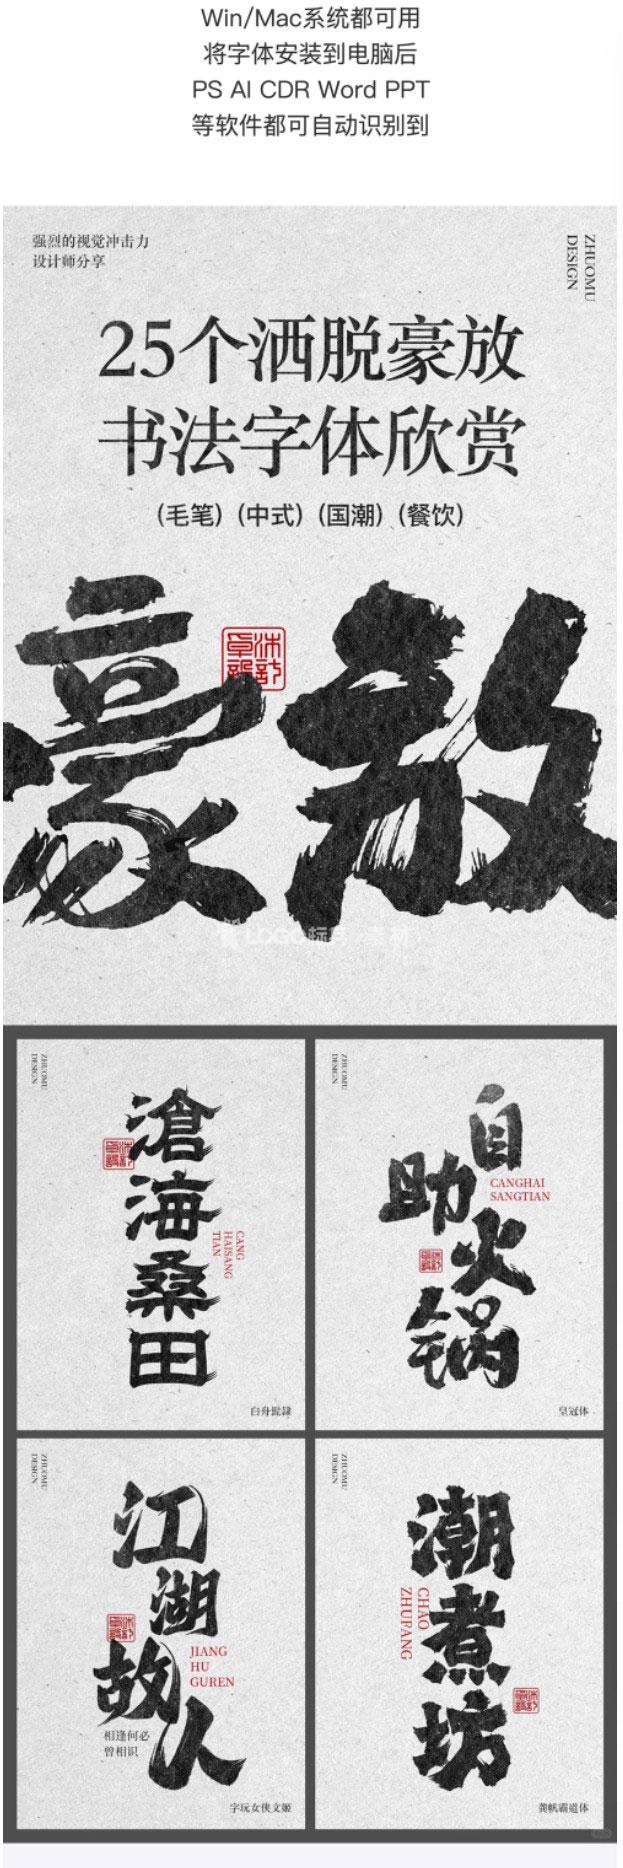 Win/Mac系统都可用
将字体安装到电脑后
PS AI CDR Word PPT
等软件都可自动识别到
强烈的视觉冲击力
设计师分享
ZHUOMU
DESIGN
25个洒脱豪放
书法字体欣赏
(毛笔) (中式) (国潮) (餐饮)
豪放
ZHUOMU
DESIGN
滄海桑田
CANG
HAISANG
TIAN
白舟髭隷
ZHUOMU
DESIGN
自助火锅
CANGHAI
SANGTIAN
皇冠体
ZHUOMU
DESIGN
江湖故人
JIANG
HU
GUREN
相逢何必
曾相识
字玩女侠文姬
ZHUOMU
DESIGN
潮煮坊
CHAO
ZHUFANG
龚帆霸道体